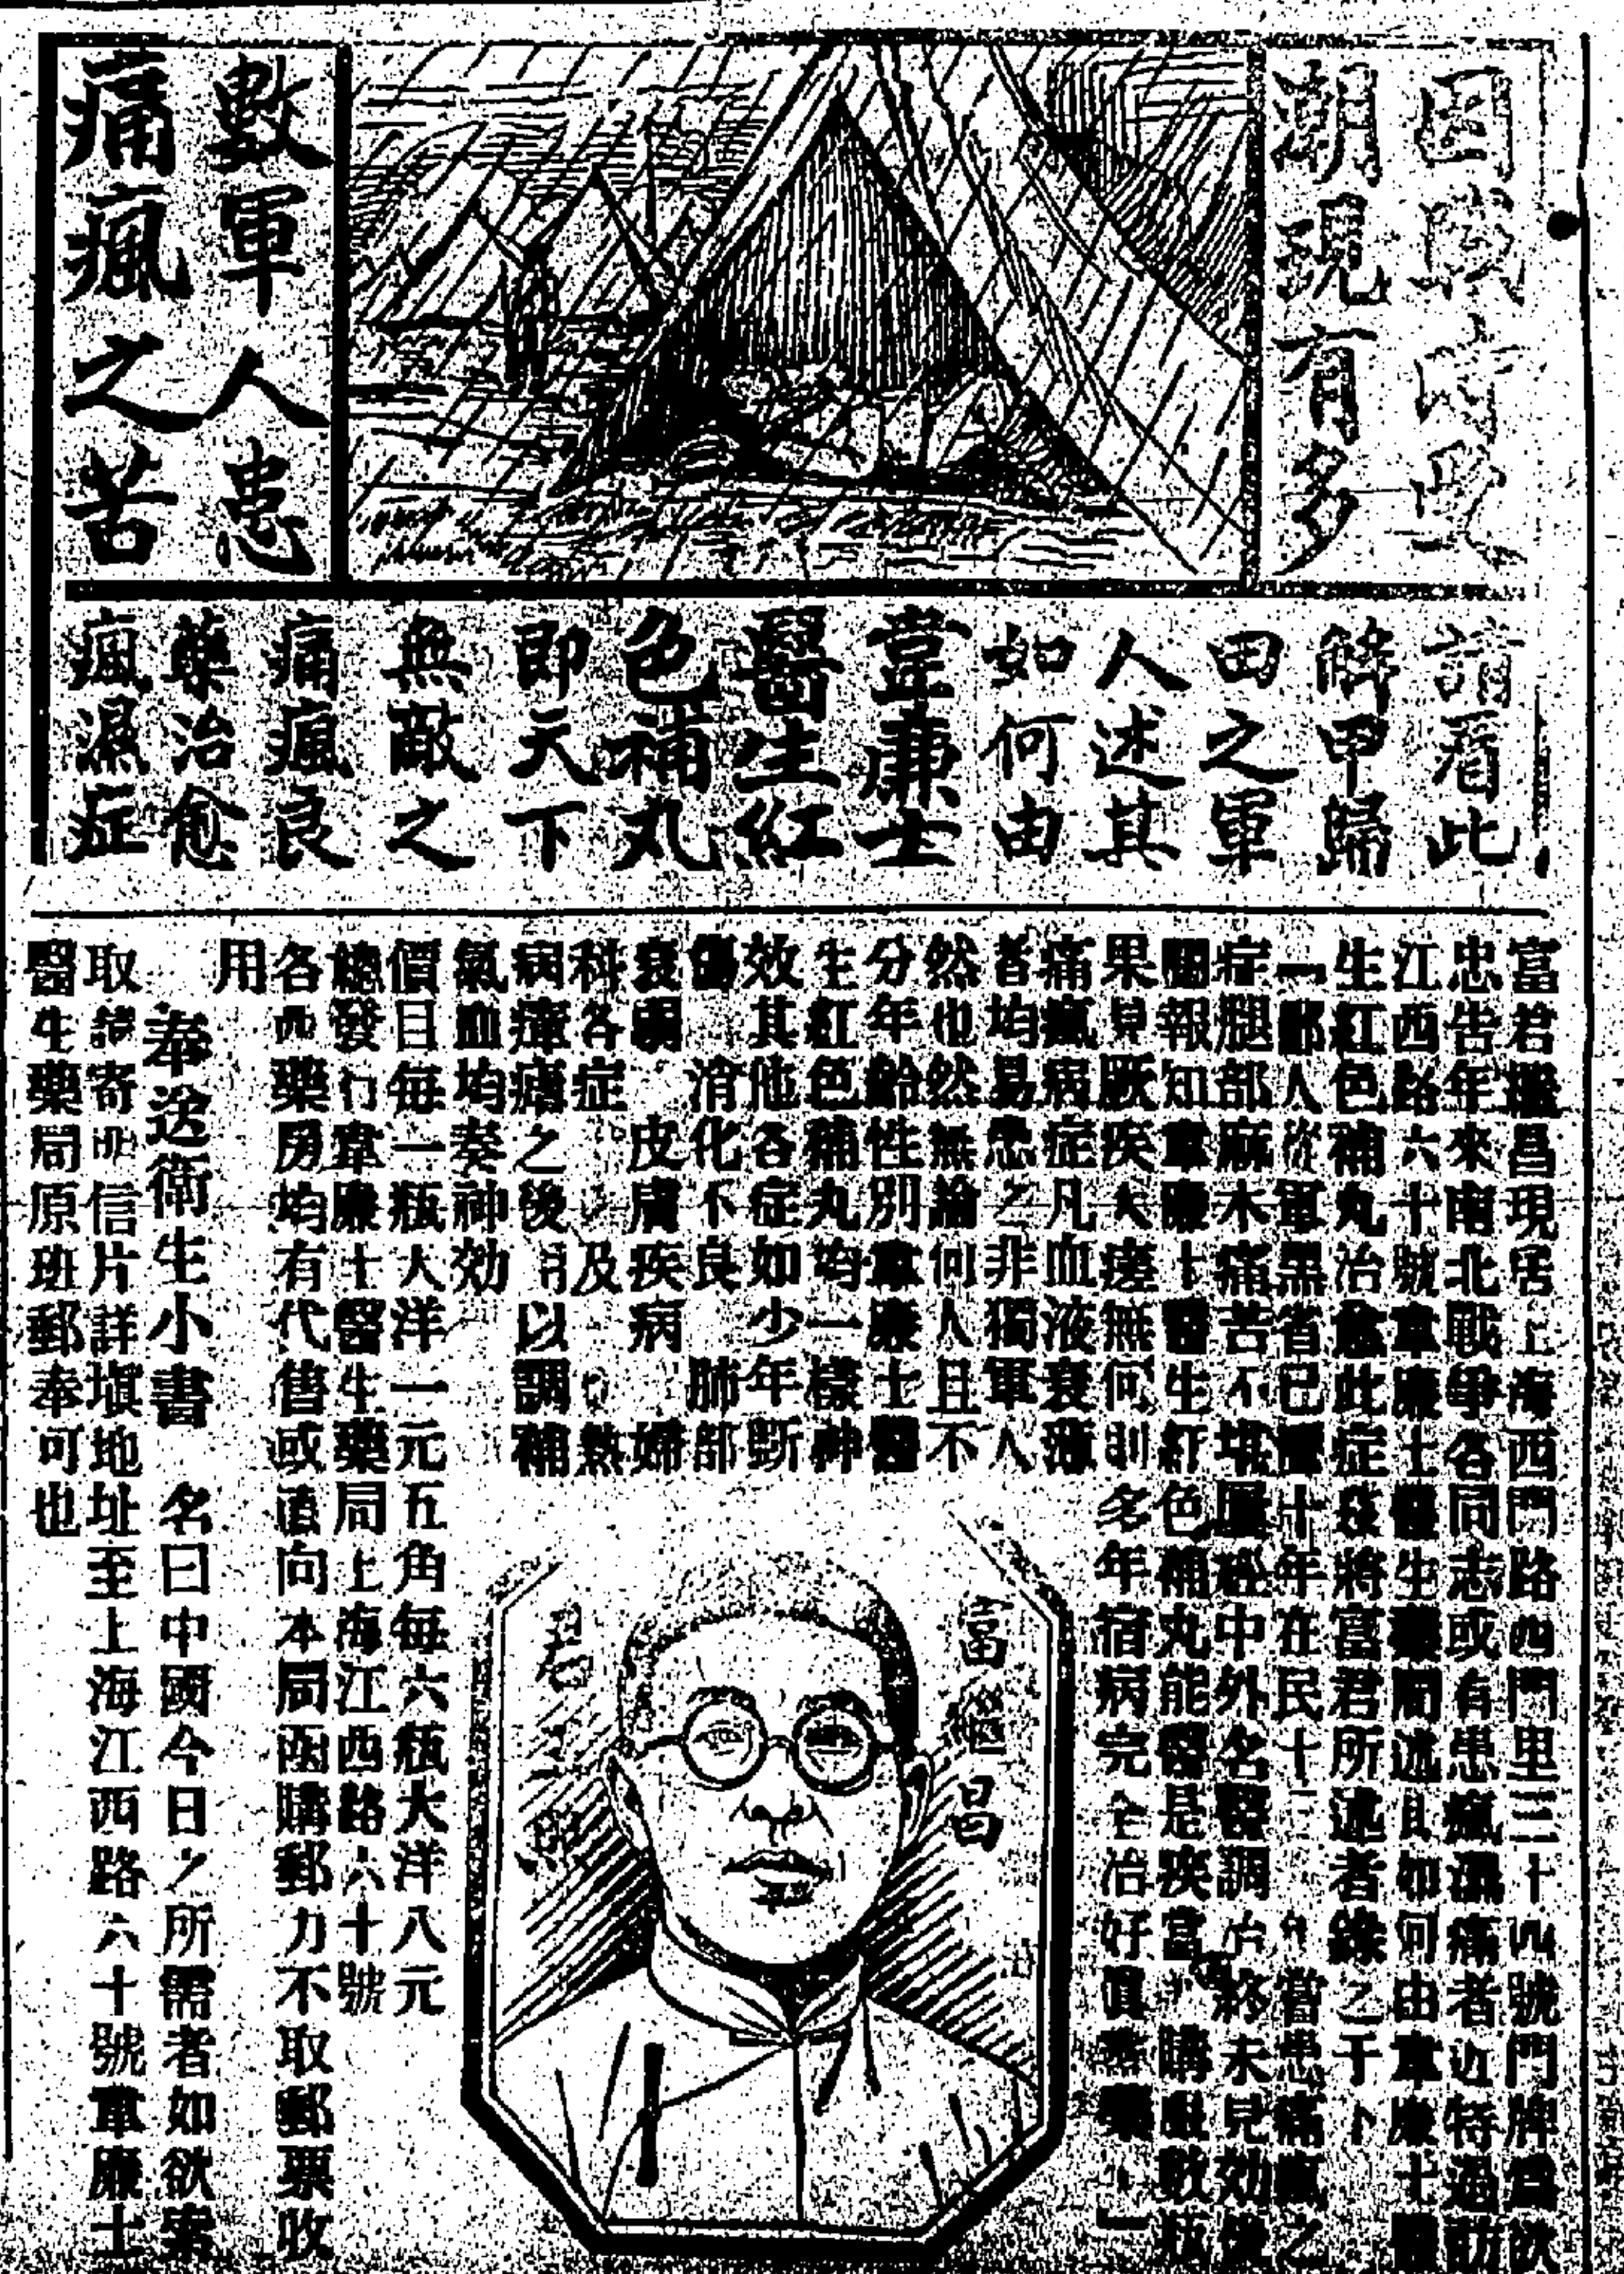 因戰時受
潮現有多
數軍人患
痛瘋之苦
請看此
解甲歸
田之軍
人述其
如何由
韋廉士
醫生紅
色補丸
即天下
無敵之
痛瘋良
藥治愈
瘋濕症
富君繼昌現居上海西門路西門里三十四號門牌爲欲
忠告年來南北戰爭各同志或有患瘋濕痛者近特過訪
江西路六十號韋廉士醫生藥局述其如何由韋廉士醫
生紅色補丸治愈此症茲將富君所述者錄之于下
「鄙人從軍黑省已十年在民十三年當患痛瘋之
症腿部麻木痛苦不堪屢經中外名醫調治終未見効後
閱報知韋廉士醫生紅色補丸能醫是疾當購服數瓶
果見厥疾大瘥無何則多年宿病完全治好真良藥也」
痛瘋病症凡血液衰薄
者均易患之非獨軍人
然也然無論何人且不
分年齡性別韋廉士醫
生紅色補丸均一樣神
效其他各症如少年斲
傷 消化不良 肺部
衰弱 皮膚疾病 婦
科各症 以及 熱
病瘴癘之後用以調補
氣血均奏神効
價目每一瓶大洋一元五角每六瓶大洋八元
總發行韋廉士醫生藥局上海江西路六十號
各西藥房均有代售或直向本局函購郵力不取郵票收
用
奉送衛生小書 名曰中國今日之所需者如欲索
取請寄明信片詳塡地址至上海江西路六十號韋廉士
醫生藥局原班郵奉可也
富繼昌
君玉照